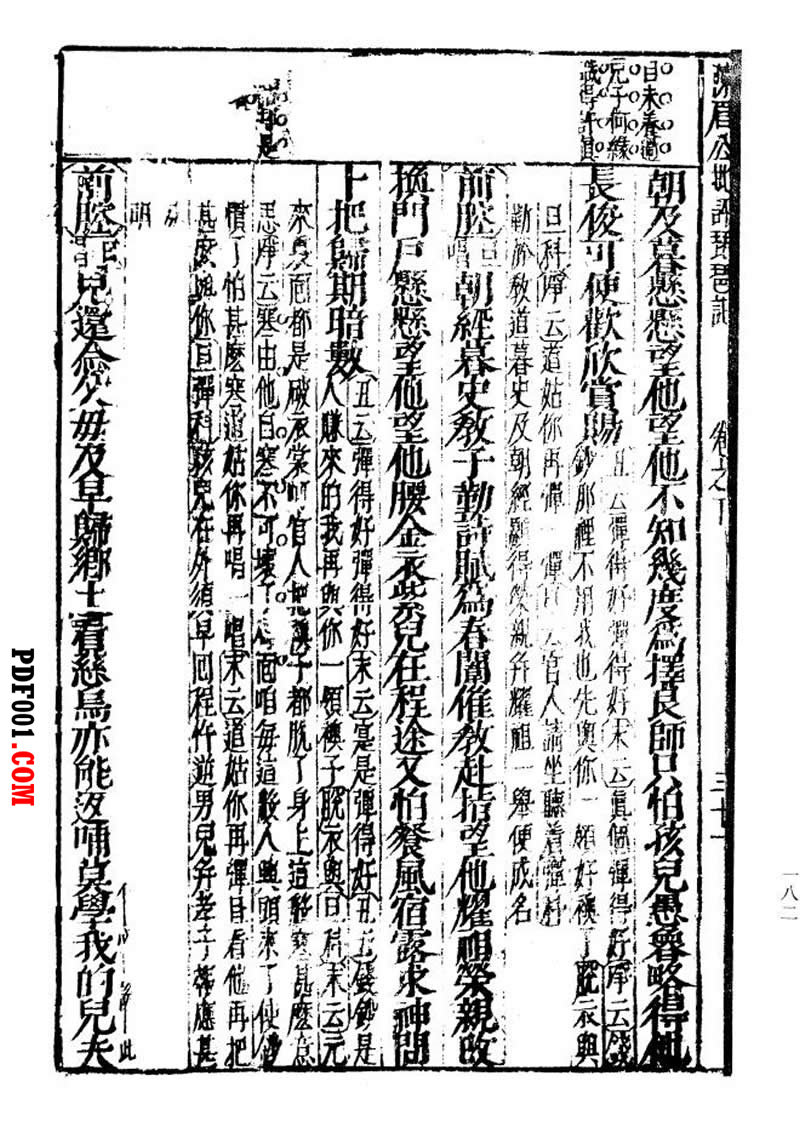 陳眉公批評琵琶記
卷之下
三十一
一八二
目未看過
兒子何緣
識得許真
是
朝及暮懸懸望他望他不知幾度為擇良師只怕孩兒愚魯略得他
長俊可便歡欣賞賜
丑云彈得好彈得好末云真個彈得好淨云錢
鈔那裡不用我也先與你一領好襖了脫衣與
旦科淨云道姑你再彈一彈旦云官人請坐聽着彈科
勤於教道暮史及朝經願得榮親并耀祖一舉便成名
前腔旦唱朝經暮史教子勤詩賦為春闈催教赴指望他耀祖榮親改
換門戶懸懸望他望他腰金衣紫兒在程途又怕餐風宿露求神問
卜把歸期暗數
丑云彈得好彈得好末云是彈得好丑云錢鈔是
人賺來的我再與你一領襖子脫衣與旦科末云元
來裏面都是破衣裳官人把襖子都脫了身上這般寒甚麼意
思淨云寒由他自寒不可壞了面咱每這般人興頭來了使
慣了怕甚麼寒道姑你再唱一唱末云道姑你再彈且看他再把
甚麼與你旦彈科孩兒在外須早回程忤逆男兒并孝子報應甚
明
前腔旦唱兒還念父母及早歸鄉土看慈烏亦能返哺莫學我的兒夫